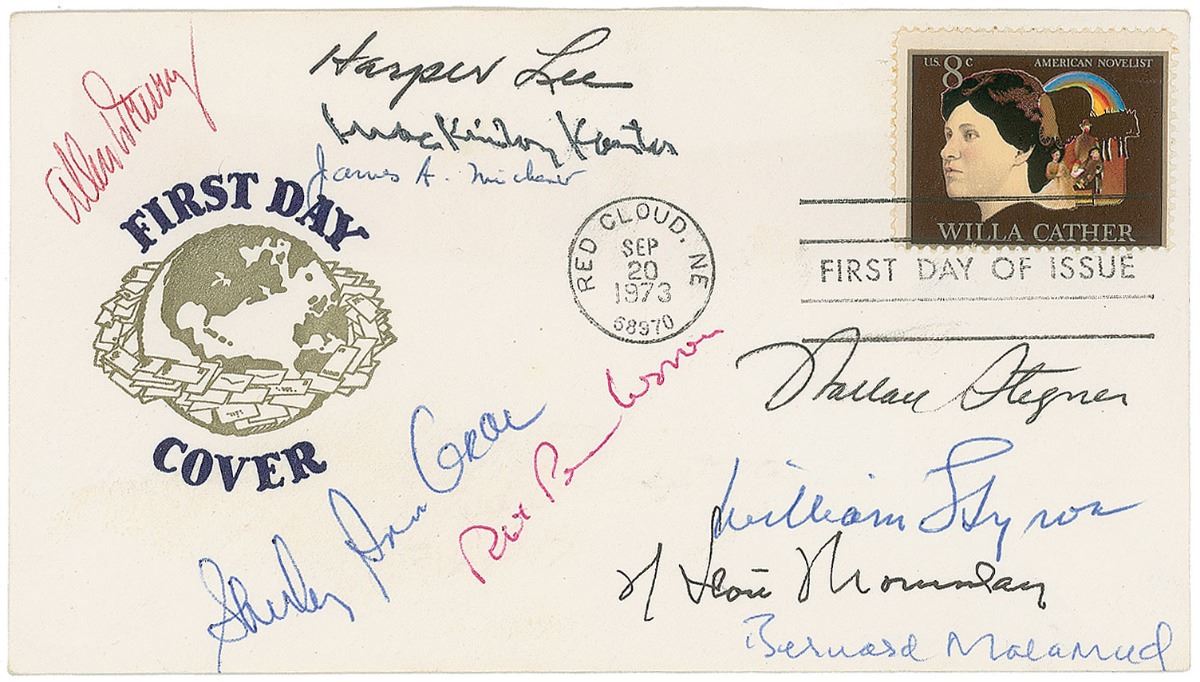 Harper Lee
Allen Drury
MacKinlay Kantor
James A. Michener
U.S. 8c
AMERICAN NOVELIST
WILLA CATHER
FIRST DAY
RED CLOUD, NE
SEP
20
1973
68970
FIRST DAY OF ISSUE
Wallace Stegner
COVER
Shirley Ann Grau
Robt Penn Warren
William Styron
N Scott Momaday
Bernard Malamud